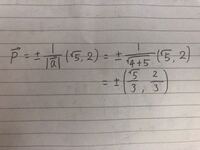 \vec{p} = ± \frac{1}{|\vec{a}|} (√5, 2) = ± \frac{1}{\sqrt{4+5}} (√5, 2)
= ± ( \frac{√5}{3}, \frac{2}{3} )